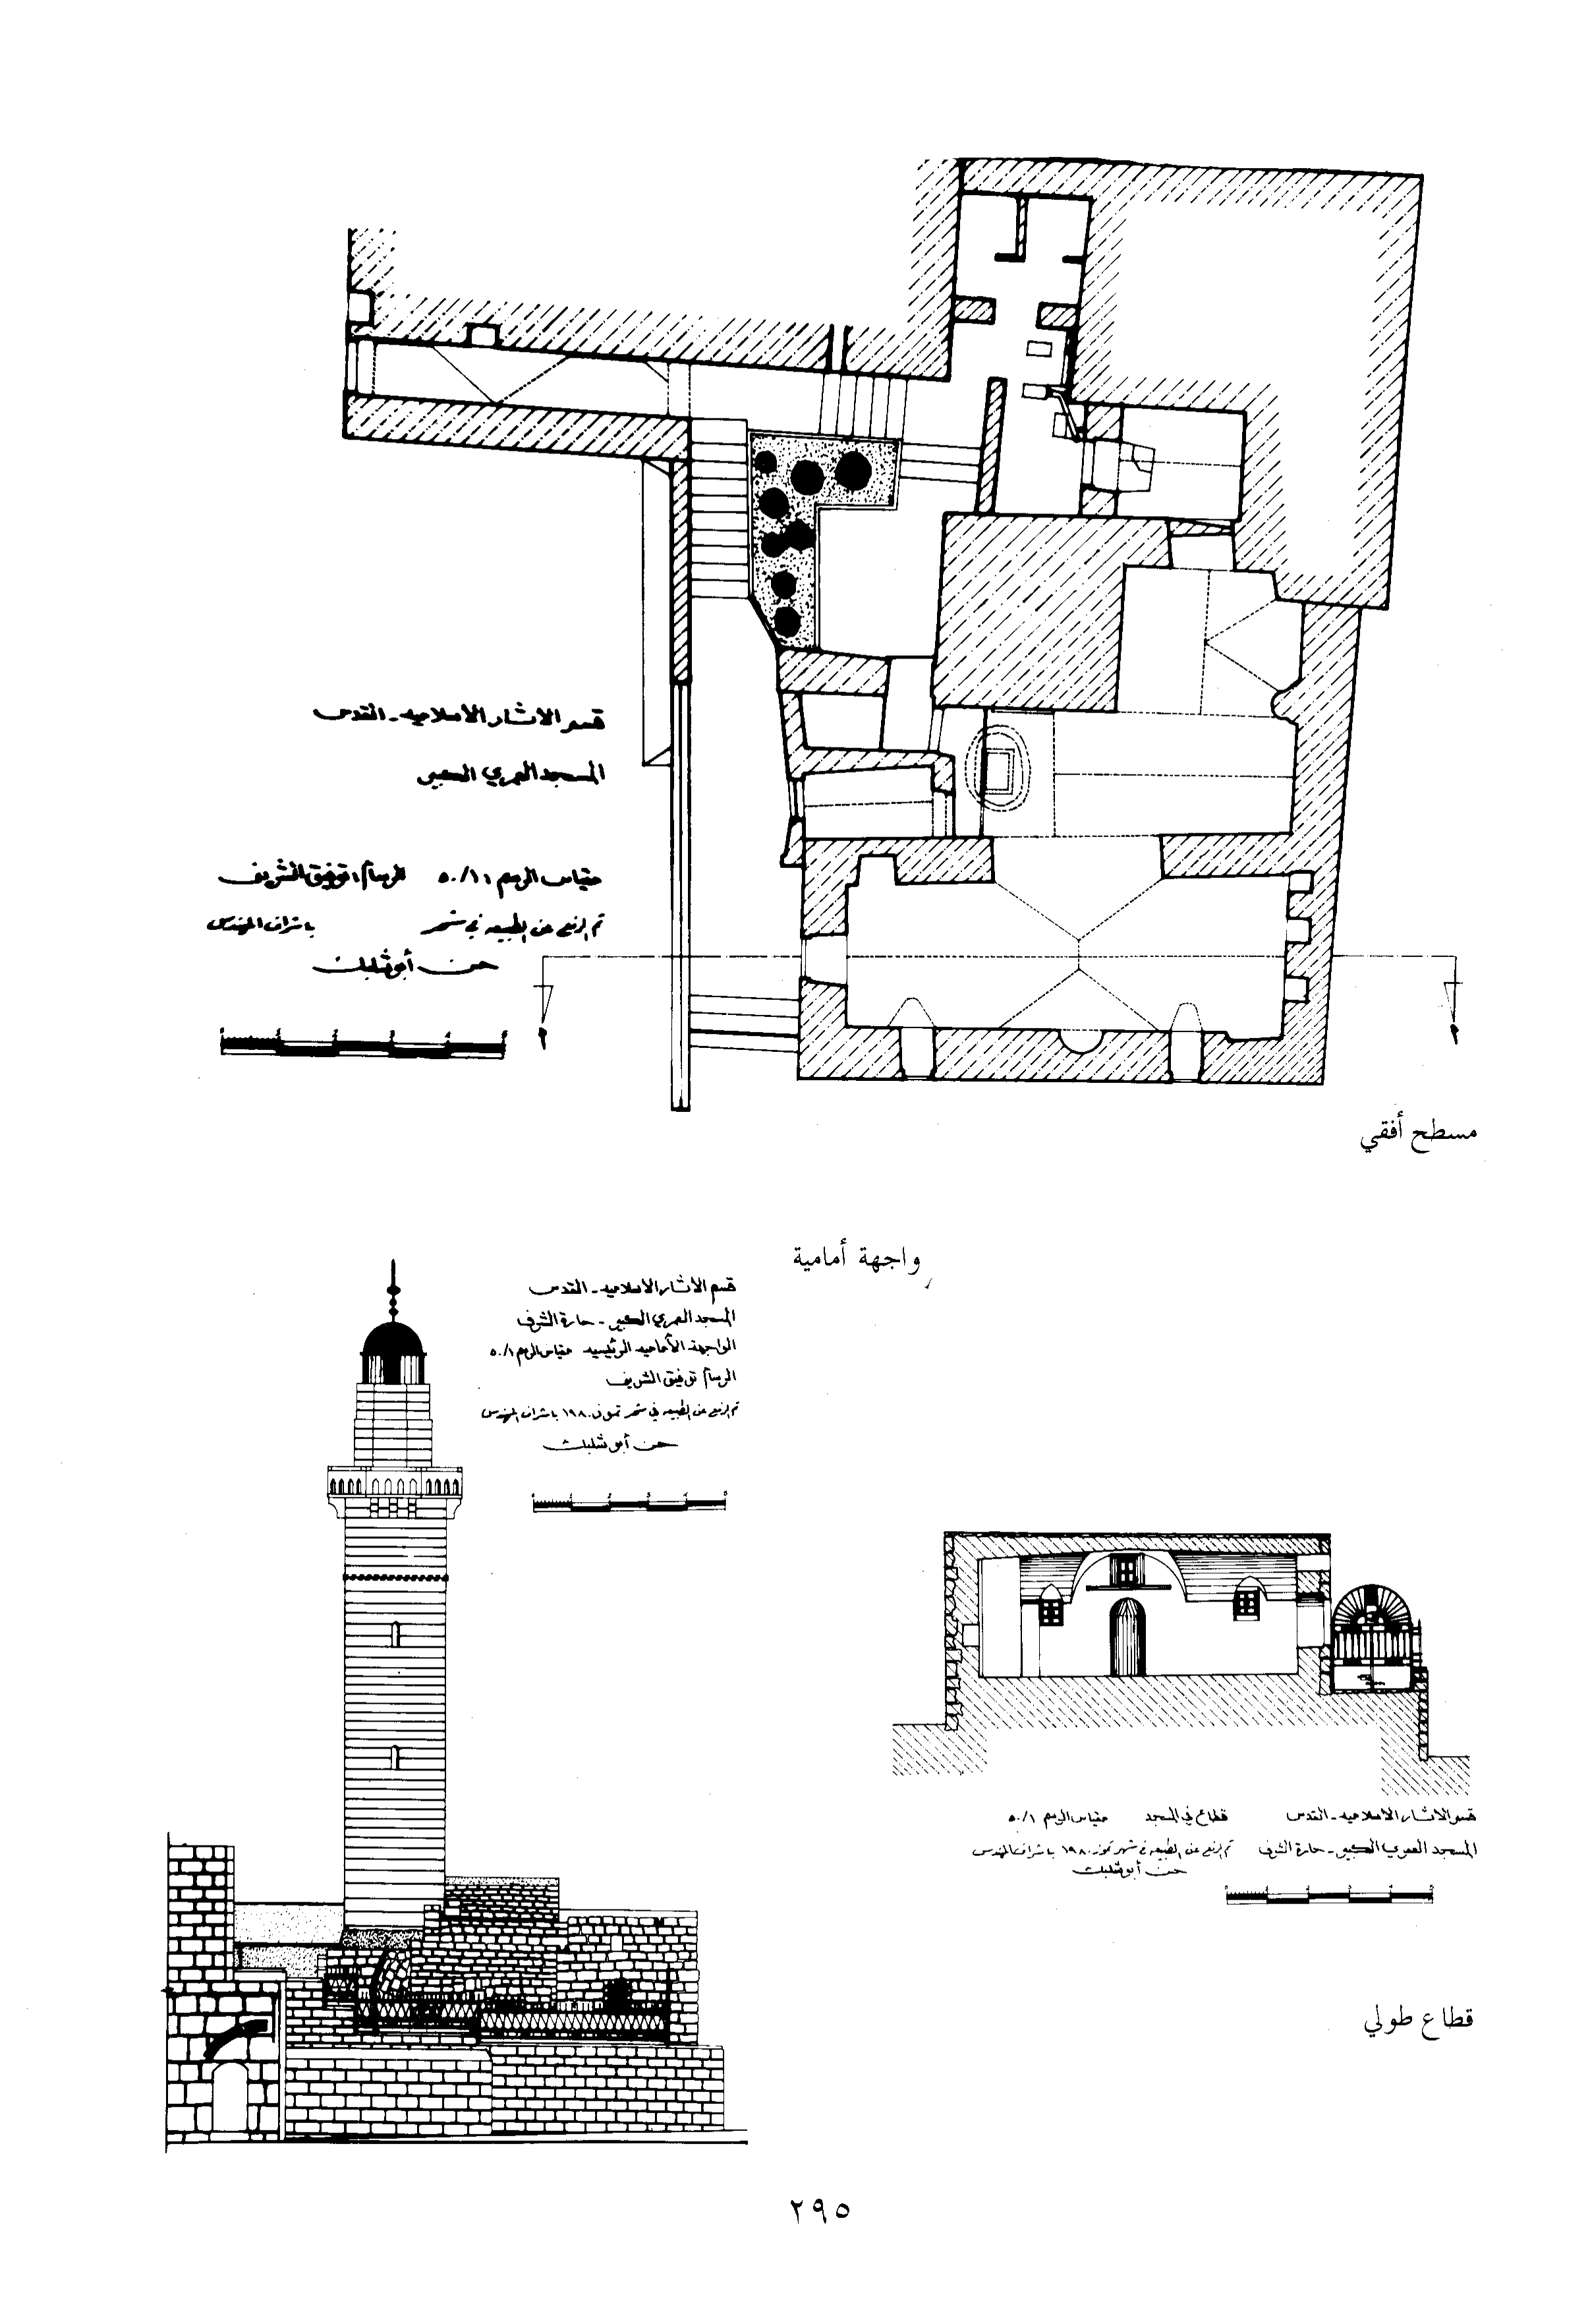 قسم الاثار الاسلاميه - القدس
المسجد العمري الكبير
مقياس الرسم ١/٥٠ الرسام توفيق الشريف
تم الرفع عن الطبيعه في شهر باشراف المهندس
حسن أبو شلبك
مسطح أفقي
واجهة أمامية
قسم الاثار الاسلاميه - القدس
المسجد العمري الكبير - حارة الشرف
الواجهة الأماميه الرئيسيه مقياس الرسم ١/٥٠
الرسام توفيق الشريف
تم الرفع عن الطبيعه في شهر تموز ١٩٨٠ باشراف المهندس
حسن أبو شلبك
قسم الاثار الاسلاميه - القدس قطاع في المسجد مقياس الرسم ١/٥٠
المسجد العمري الكبير - حارة الشرف تم الرفع عن الطبيعه في شهر تموز ١٩٨٠ باشراف المهندس
حسن أبو شلبك
قطاع طولي
٢٩٥